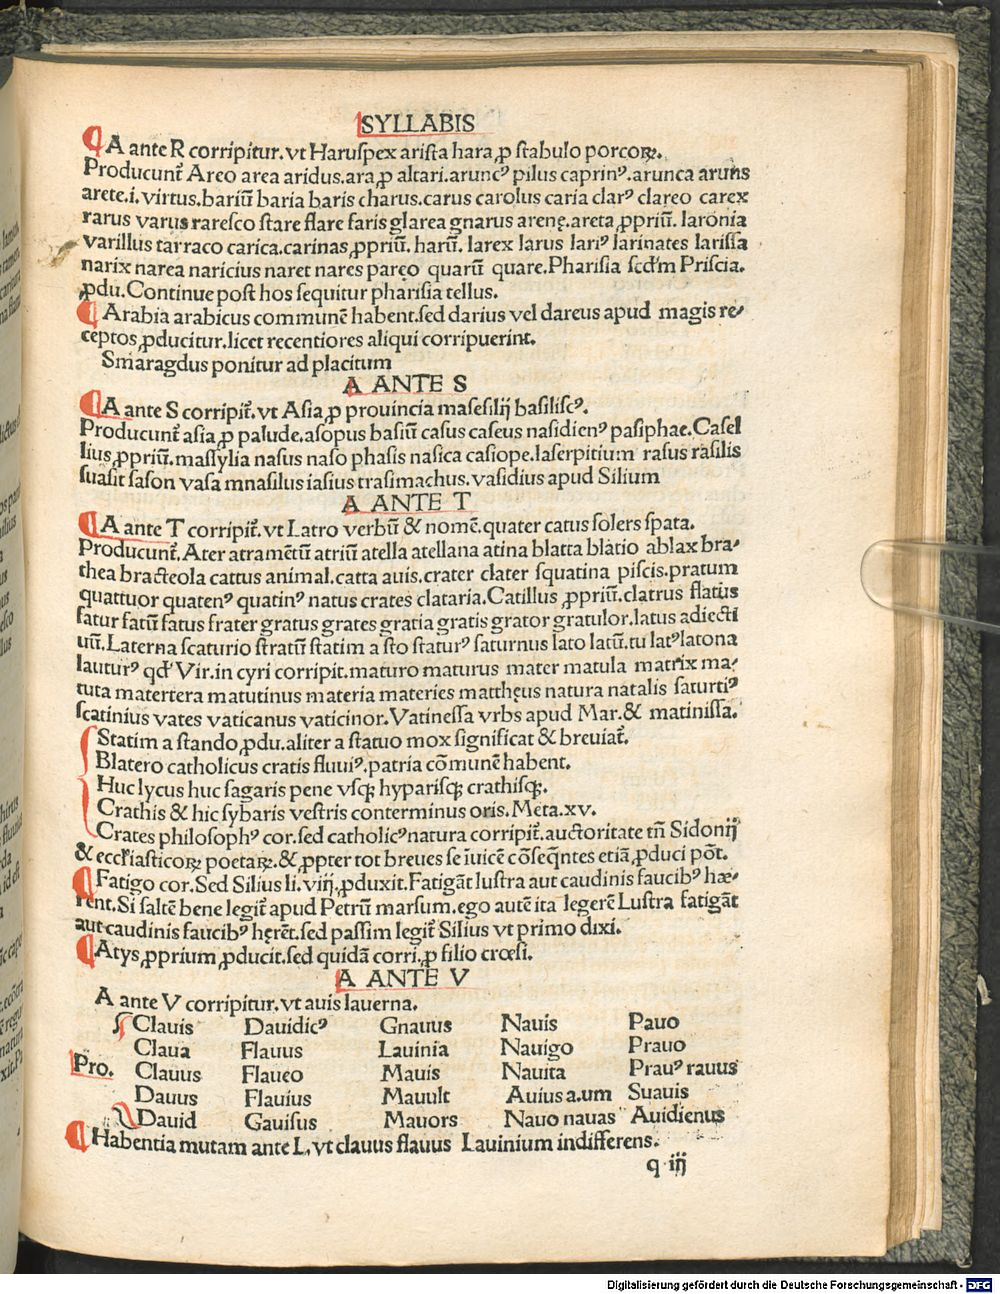 SYLLABIS
¶ A ante R corripitur. vt Haruſpex ariſta hara ꝓ ſtabulo porcoꝝ.
Producunt᷑ Areo area aridus. ara ꝓ altari. arunc⁹ pilus caprin⁹. arunca aruns
arete. i. virtus. bariū baria baris charus. carus carolus caria clar⁹ clareo carex
rarus varus rareſco ſtare flare faris glarea gnarus arenę. areta ꝓpriū. laronia
varillus tarraco carica. carinas ꝓpriū. harū. larex larus lari⁹ larinates lariſſa
narix narea naricius naret nares pareo quarū quare. Phariſia ſcd'm Priſcia.
ꝓdu. Continue poſt hos ſequitur phariſia tellus.
¶ Arabia arabicus communē habent. ſed darius vel dareus apud magis re⸗
ceptos ꝓducitur. licet recentiores aliqui corripuerint.
Smaragdus ponitur ad placitum
A ANTE S
¶ A ante S corripit᷑. vt Aſia ꝓ prouincia maſeſilij baſiliſc⁹.
Producunt᷑ aſia ꝓ palude. aſopus baſiū caſus caſeus naſidien⁹ paſiphae. Caſel
lius ꝓpriū. maſſylia naſus naſo phaſis naſica caſiope. laſerpitium raſus raſilis
ſuaſit ſaſon vaſa mnaſilus iaſius traſimachus. vaſidius apud Silium
A ANTE T
¶ A ante T corripit᷑. vt Latro verbū & nomē. quater catus ſolers ſpata.
Producunt᷑. Ater atramētū atriū atella atellana atina blatta blatio ablax bra⸗
thea bracteola cattus animal. catta auis. crater clater ſquatina piſcis. pratum
quattuor quaten⁹ quatin⁹ natus crates clataria. Catillus ꝓpriū. clatrus flatus
fatur fatū fatus frater gratus grates gratia gratis grator gratulor. latus adiecti
uū. Laterna ſcaturio ſtratū ſtatim a ſto ſtatur⁹ ſaturnus lato latū. tu lat⁹ latona
lautur⁹ qd' Vir. in cyri corripit. maturo maturus mater matula matrix ma⸗
tuta matertera matutinus materia materies matthęus natura natalis ſaturti⁹
ſcatinius vates vaticanus vaticinor. Vatineſſa vrbs apud Mar. & matiniſſa.
Statim a ſtando ꝓdu. aliter a ſtatuo mox ſignificat & breuiat᷑.
Blatero catholicus cratis fluuı⁹. patria cōmunē habent.
Huc lycus huc ſagaris pene vſqꝫ hypariſqꝫ crathiſqꝫ.
Crathis & hic ſybaris veſtris conterminus oris. Meta. xv.
Crates philoſoph⁹ cor. ſed catholic⁹ natura corripit᷑. auctoritate tñ Sidonij
& eccl'iaſticoꝝ poetaꝝ. & ꝓpter tot breues ſe iuicē cōſeqñtes etiā ꝓduci pōt.
¶ Fatigo cor. Sed Silius li. viij. ꝓduxit. Fatigāt luſtra aut caudinis faucib⁹ hæ⸗
rent. Si ſaltē bene legit᷑ apud Petrū marſum. ego autē ita legerē Luſtra fatigāt
aut caudinis faucib⁹ hęrēt. ſed paſſim legit᷑ Silius vt primo dixi.
¶ Atys ꝓprium ꝓducit. ſed quidā corri. ꝓ filio crœſi.
A ANTE V
A ante V corripitur. vt auis lauerna.
Clauis Dauidic⁹ Gnauus Nauis Pauo
Claua Flauus Lauinia Nauigo Prauo
Pro. Clauus Flaueo Mauis Nauita Prau⁹ rauus
Dauus Flauius Mauult Auius a. um Suauis
Dauid Gauiſus Mauors Nauo nauas Auidienus
¶ Habentia mutam ante L, vt clauus flauus Lauinium indifferens.
q iij
Digitalisierung gefördert durch die Deutsche Forschungsgemeinschaft - DFG